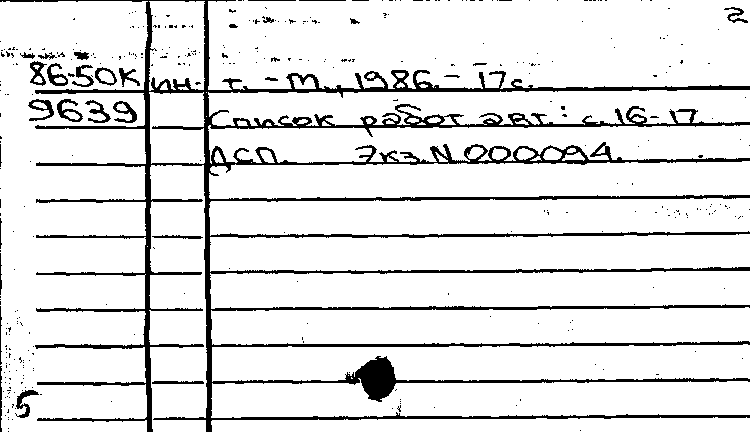 2
86-50К ин- т. - М., 1986. - 17 с.
9639 Список работ авт.: с. 16-17
ДСП. Экз. N 000094.
5